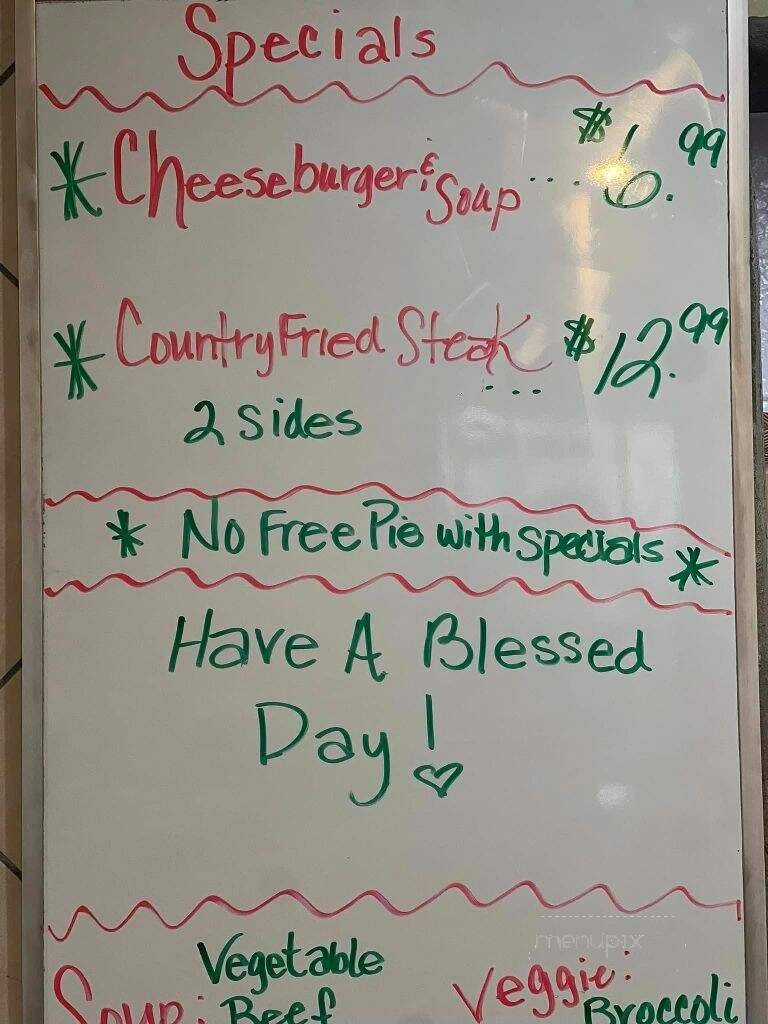 Specials
* Cheeseburger & Soup ... $6.99
* Country Fried Steak ... $12.99
2 sides
* No Free Pie with Specials *
Have A Blessed
Day!
Vegetable Veggie:
Soup: Beef Broccoli
menupix